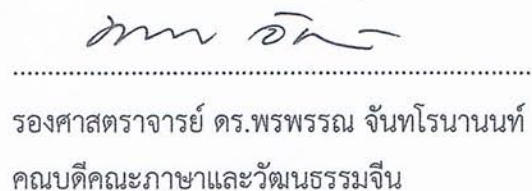 รองศาสตราจารย์ ดร.พรพรรณ จันทโรนานนท์
คณบดีคณะภาษาและวัฒนธรรมจีน